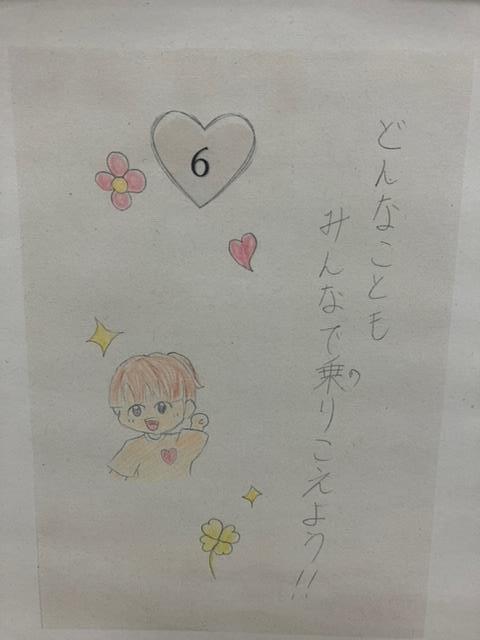 6
どんなことも
みんなで乗りこえよう!!
の